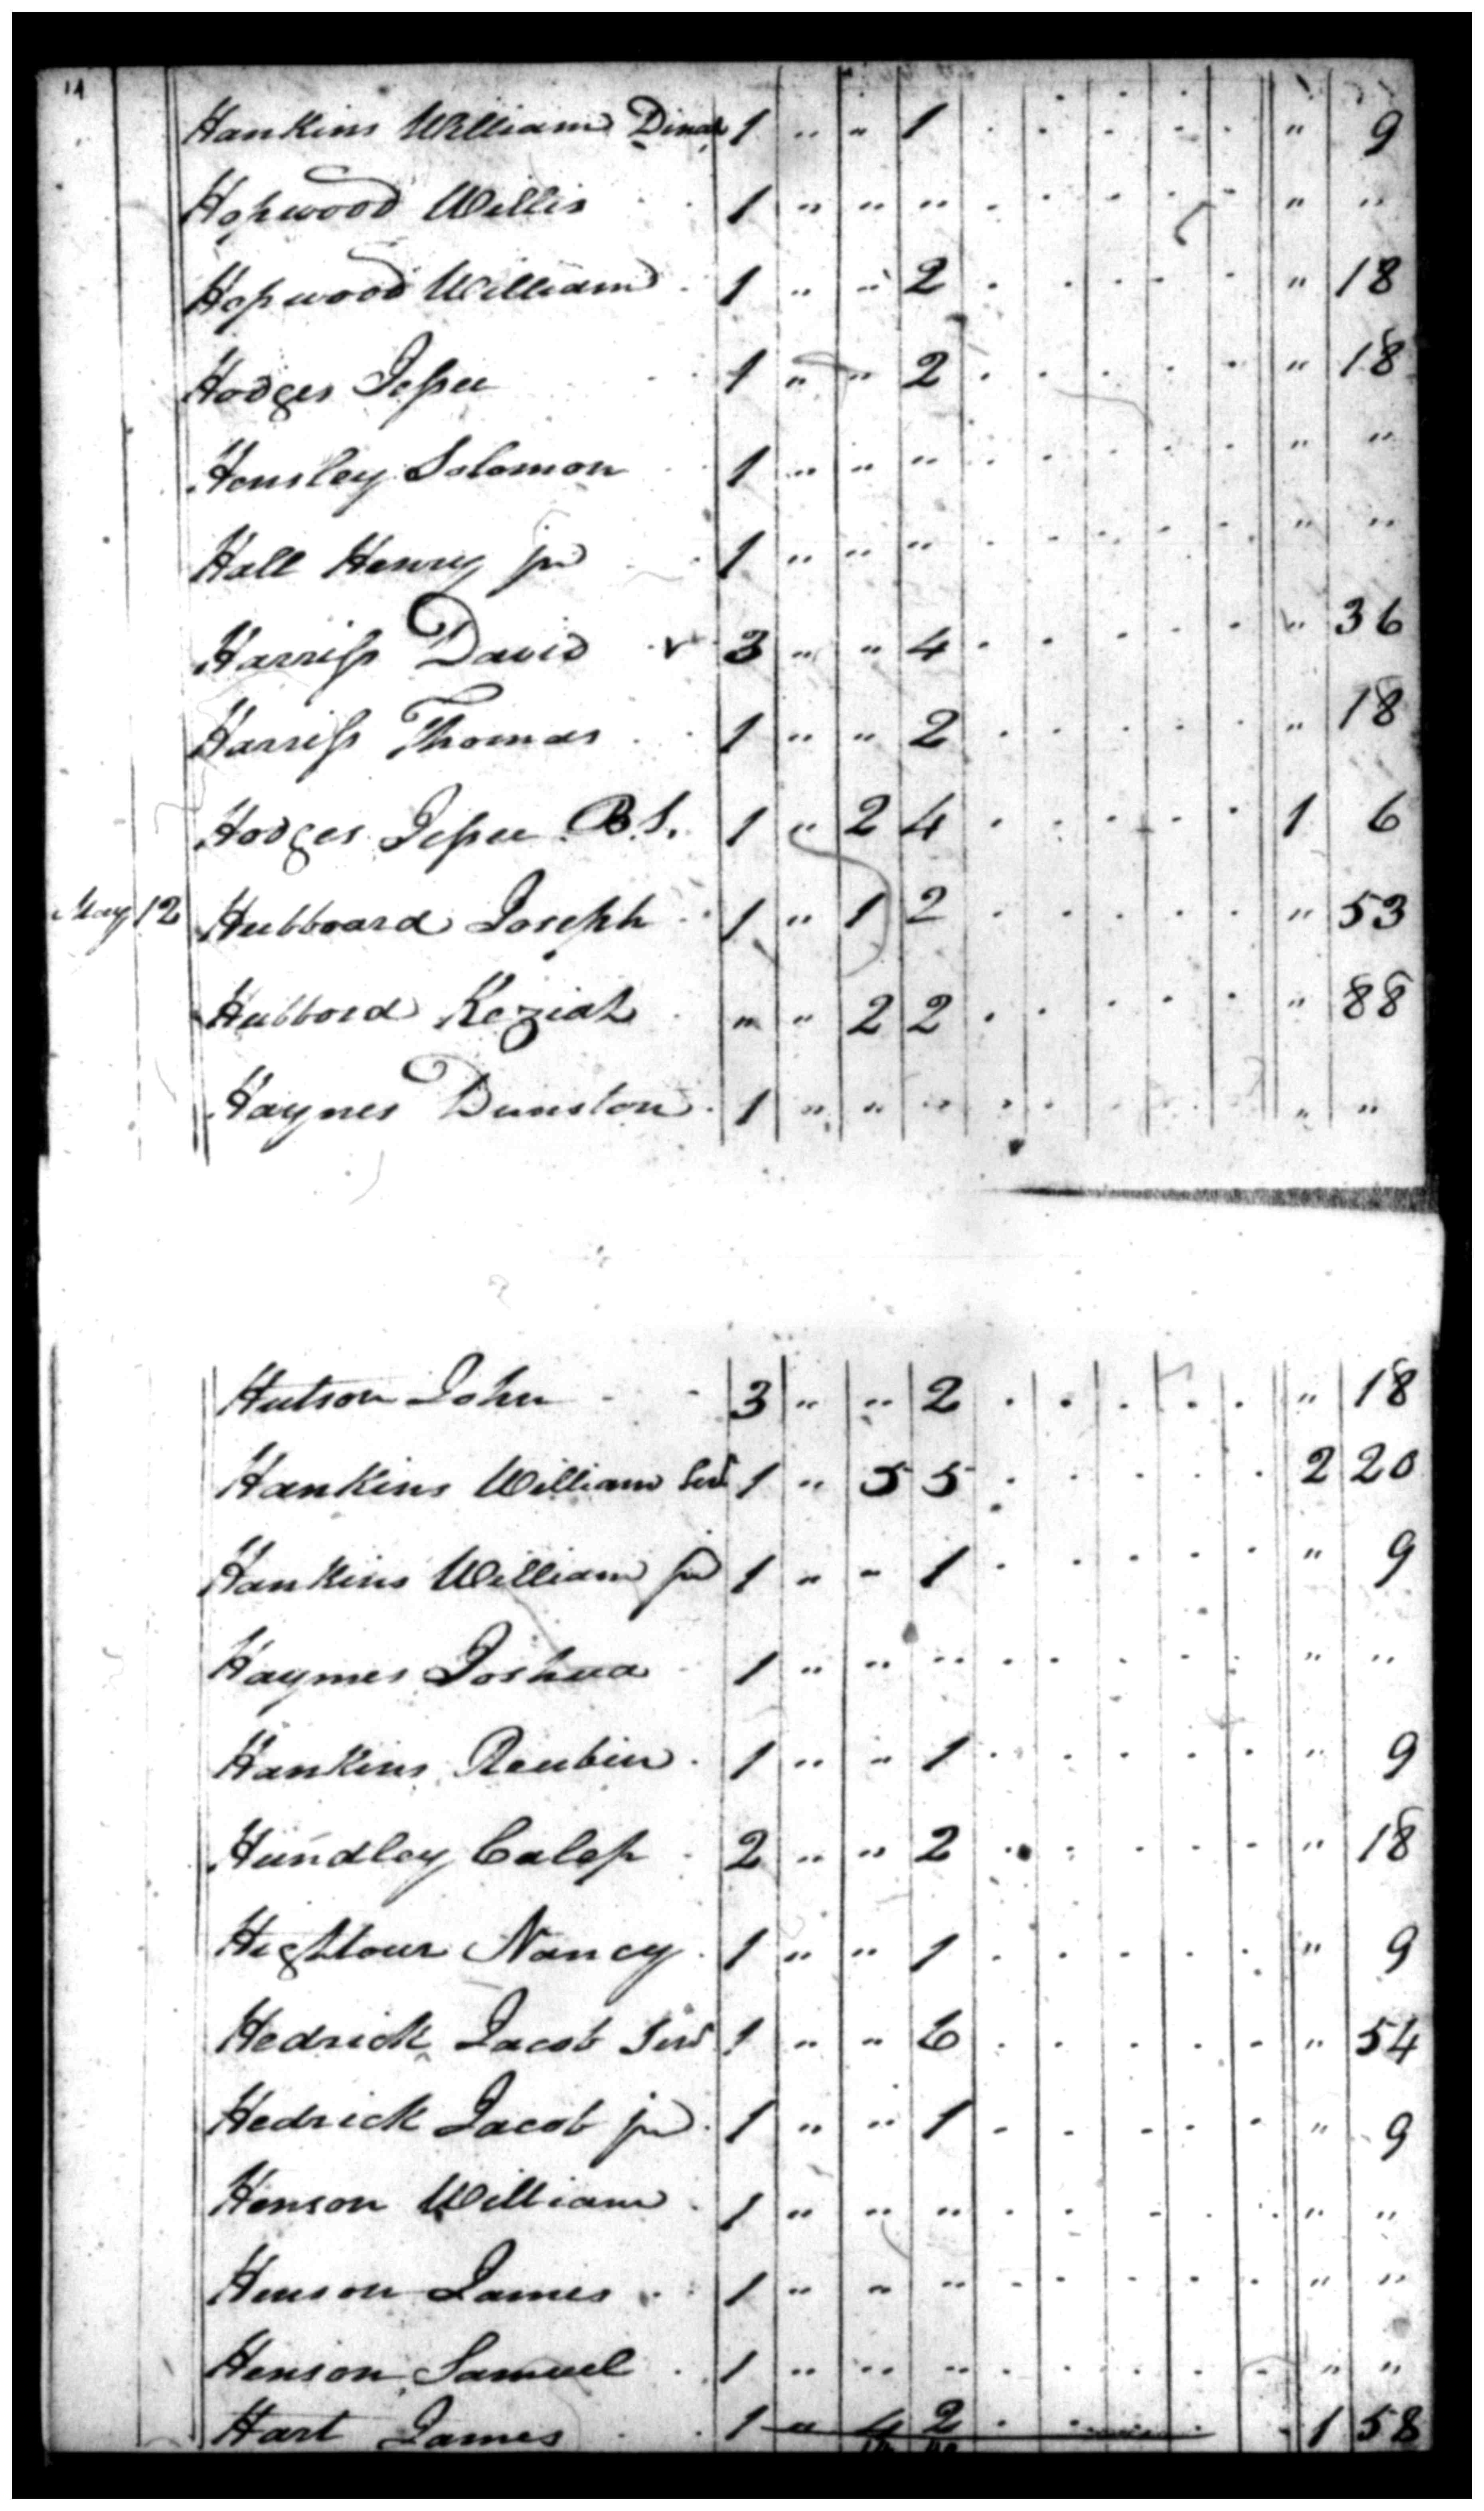 Hankins William Dinah 1 " " 1 . . . . . " 9
Hopwood Willis . . 1 " " " . . . . . " "
Hopwood William . 1 " " 2 . . . . . " 18
Hodges Jesse . . 1 " " 2 . . . . . " 18
Hensley Solomon . . 1 " " " . . . . . " "
Hall Henry jr . . 1 " " " . . . . . " "
Harriss David 3 " " 4 . . . . . " 36
Harriss Thomas . . 1 " " 2 . . . . . " 18
Hodges Jesse B.S. 1 " 2 4 . . . . . 1 6
May 12 Hubboard Joseph . . 1 " 1 2 . . . . . " 53
Hubbord Keziah . " " 2 2 . . . . . " 88
Haynes Dunston . 1 " " " . . . . . " "
Hutson John - - 3 " " 2 . . . . . " 18
Hankins William Senr 1 " 5 5 . . . . . 2 20
Hankins William jr 1 " " 1 . . . . . " 9
Haymes Joshua . 1 " " " . . . . . " "
Hankins Reubin . 1 " " 1 . . . . . " 9
Hundley Calep . 2 " " 2 . . . . . " 18
Hightour Nancy . 1 " " 1 . . . . . " 9
Hedrick Jacob Senr 1 " " 6 . . . . . " 54
Hedrick Jacob jr . 1 " " 1 . . . . . " 9
Henson William . 1 " " " . . . . . " "
Henson James . . 1 " " " . . . . . " "
Henson Samuel . 1 " " " . . . . . " "
Hart James . . 1 " 4 2 . . . . . 1 58